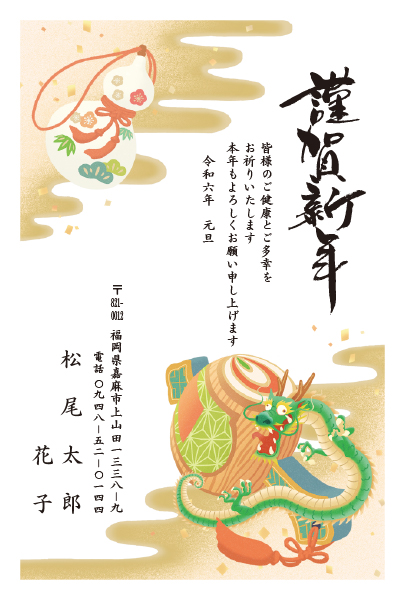 謹賀新年
皆様のご健康とご多幸を
お祈りいたします
本年もよろしくお願い申し上げます
令和六年　元旦
〒821-0012
福岡県嘉麻市上山田一三三八ー九
電話 〇九四八ー五二ー〇一四四
松尾太郎
花子